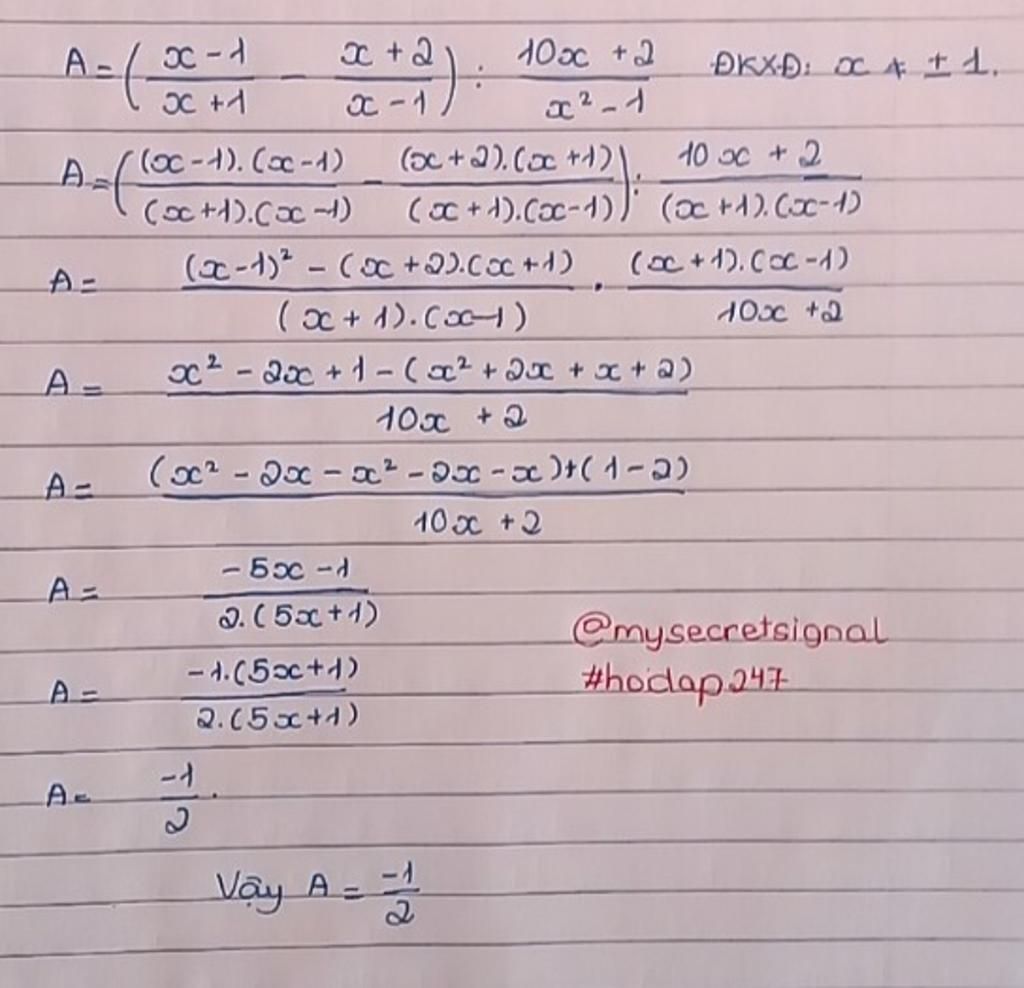 A = ( (x - 1)/(x + 1) - (x + 2)/(x - 1) ) : (10x + 2)/(x² - 1) ĐKXĐ: x ≠ ± 1.
A = ( ((x - 1).(x - 1))/((x + 1).(x - 1)) - ((x + 2).(x + 1))/((x + 1).(x - 1)) ) : (10x + 2)/((x + 1).(x - 1))
A = ((x - 1)² - (x + 2).(x + 1))/((x + 1).(x - 1)) . ((x + 1).(x - 1))/(10x + 2)
A = (x² - 2x + 1 - (x² + 2x + x + 2))/(10x + 2)
A = ((x² - 2x - x² - 2x - x) + (1 - 2))/(10x + 2)
A = (-5x - 1)/(2.(5x + 1))
@mysecretsignal
A = (-1.(5x + 1))/(2.(5x + 1))
#hoidap247
A = -1/2 .
Vậy A = -1/2